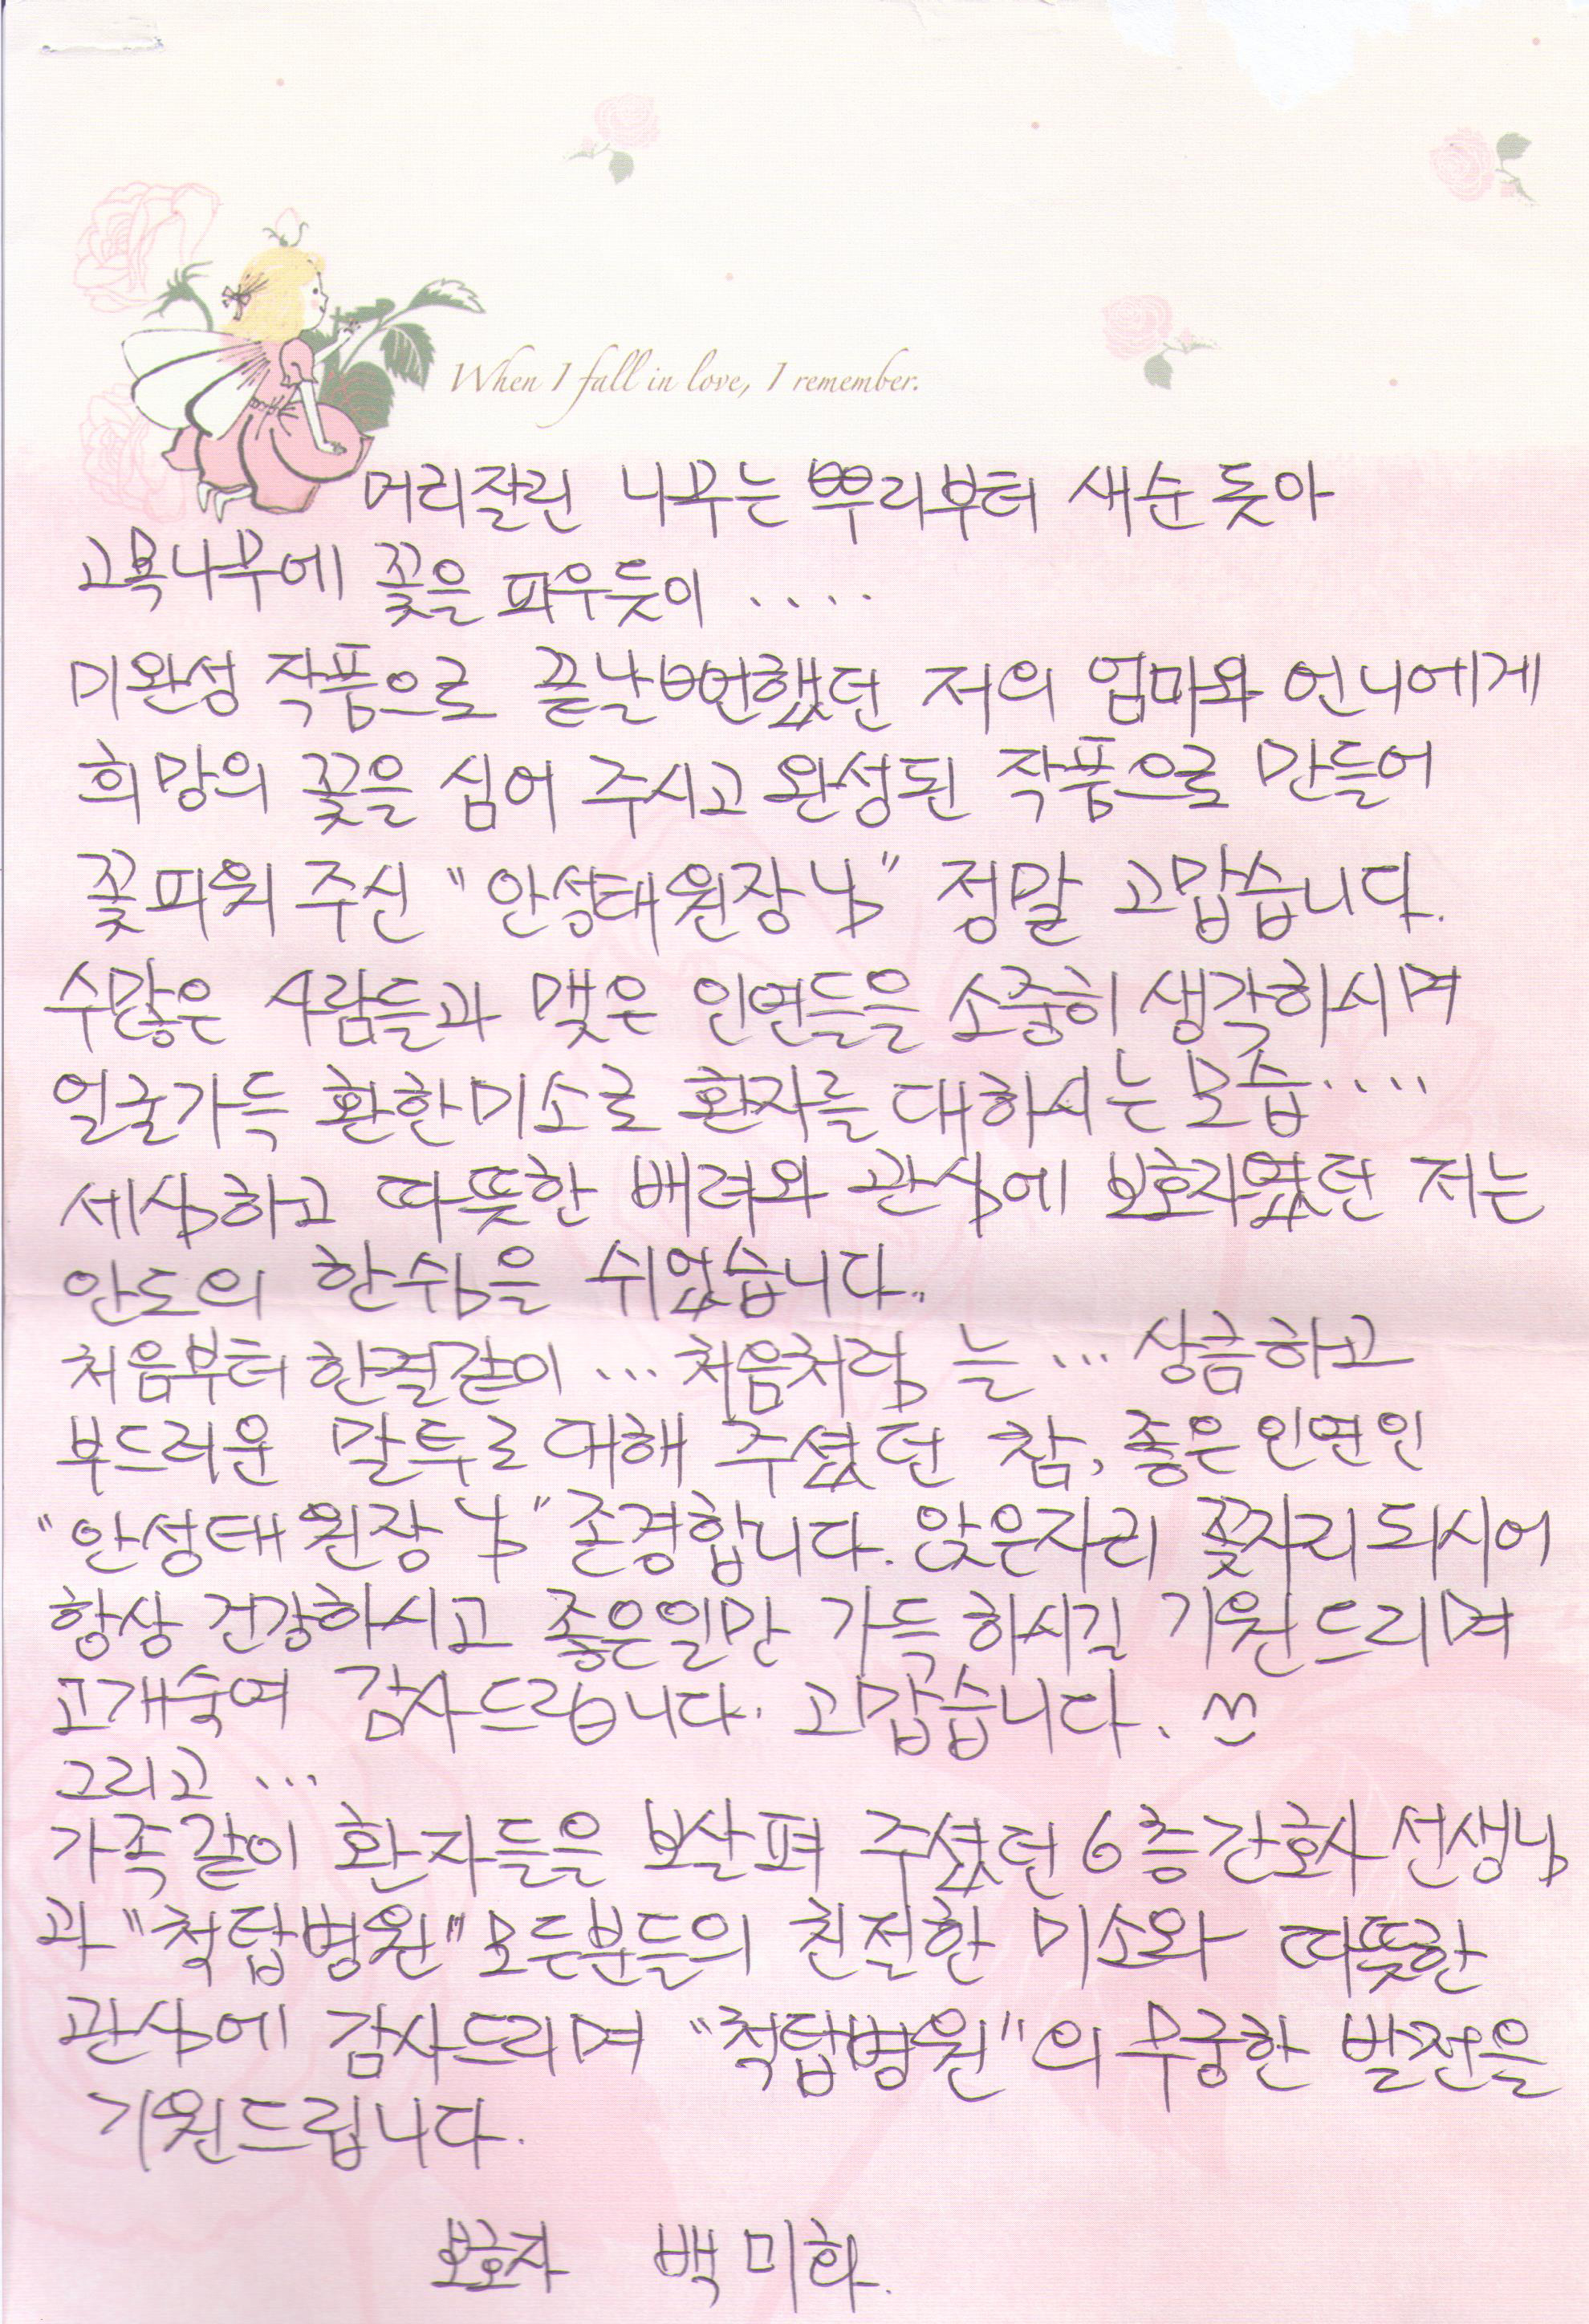 When I fall in love, I remember.
머리잘린 나무는 뿌리부터 새순 돋아
고목나무에 꽃을 피우듯이 ....
미완성 작품으로 끝날뻔했던 저의 엄마와 언니에게
희망의 꽃을 심어 주시고 완성된 작품으로 만들어
꽃피워 주신 "안성태원장님" 정말 고맙습니다.
수많은 사람들과 맺은 인연들을 소중히 생각하시며
얼굴가득 환한미소로 환자를 대하시는 모습....
세심하고 따뜻한 배려와 관심에 보호자였던 저는
안도의 한쉼을 쉬었습니다..
처음부터 한결같이 ... 처음처럼 늘 ... 상큼하고
부드러운 말투로 대해 주셨던 참, 좋은인연인
"안성태원장님" 존경합니다. 앉은자리 꽃자리되시어
항상 건강하시고 좋은일만 가득 하시길 기원드리며
고개숙여 감사드립니다. 고맙습니다. ^^
그리고 ...
가족같이 환자들을 보살펴 주셨던 6층간호사 선생님
과 "척탑병원" 모든분들의 친절한 미소와 따뜻한
관심에 감사드리며 "척탑병원"의 무궁한 발전을
기원드립니다.
보호자 백미화.